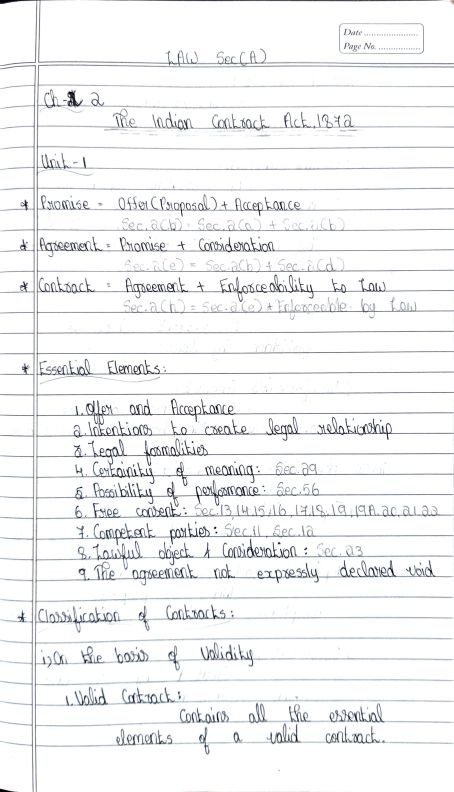 Date ....................
Page No. ...............
LAW Sec(A)
Ch-2
The Indian Contract Act, 1872
Unit-1
* Promise = Offer (Proposal) + Acceptance
Sec.2(b) = Sec.2(a) + Sec.2(b)
* Agreement = Promise + Consideration
Sec.2(e) = Sec.2(b) + Sec.2(d)
* Contract = Agreement + Enforceability to Law
Sec.2(h) = Sec.2(e) + Enforceable by Law
* Essential Elements:
1. Offer and Acceptance
2. Intentions to create legal relationship
3. Legal formalities
4. Certainity of meaning: Sec.29
5. Possibility of performance: Sec.56
6. Free consent: Sec.13,14,15,16,17,18,19,19A,20,21,22
7. Competent parties: Sec.11, Sec.12
8. Lawful object & Consideration: Sec.23
9. The agreement not expressly declared void
* Classification of Contracts:
i) On the basis of Validity
1. Valid Contract:
Contains all the essential
elements of a valid contract.